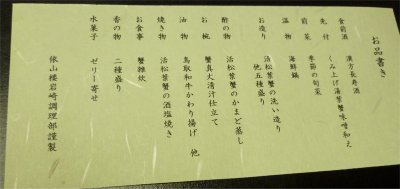 お品書き
食前酒 漢方長寿酒
先付 くみ上げ湯葉蟹味噌和え
前菜 季節の旬菜
温物 海鮮鍋
お造り 活松葉蟹の洗い造り
他五種盛り
酢の物 活松葉蟹のかまど蒸し
お椀 蟹真丈清汁仕立て
油物 鳥取和牛かわり揚げ 他
焼き物 活松葉蟹の酒塩焼き
お食事 蟹雑炊
香の物 二種盛り
水菓子 ゼリー寄せ
依山楼岩崎調理部謹製